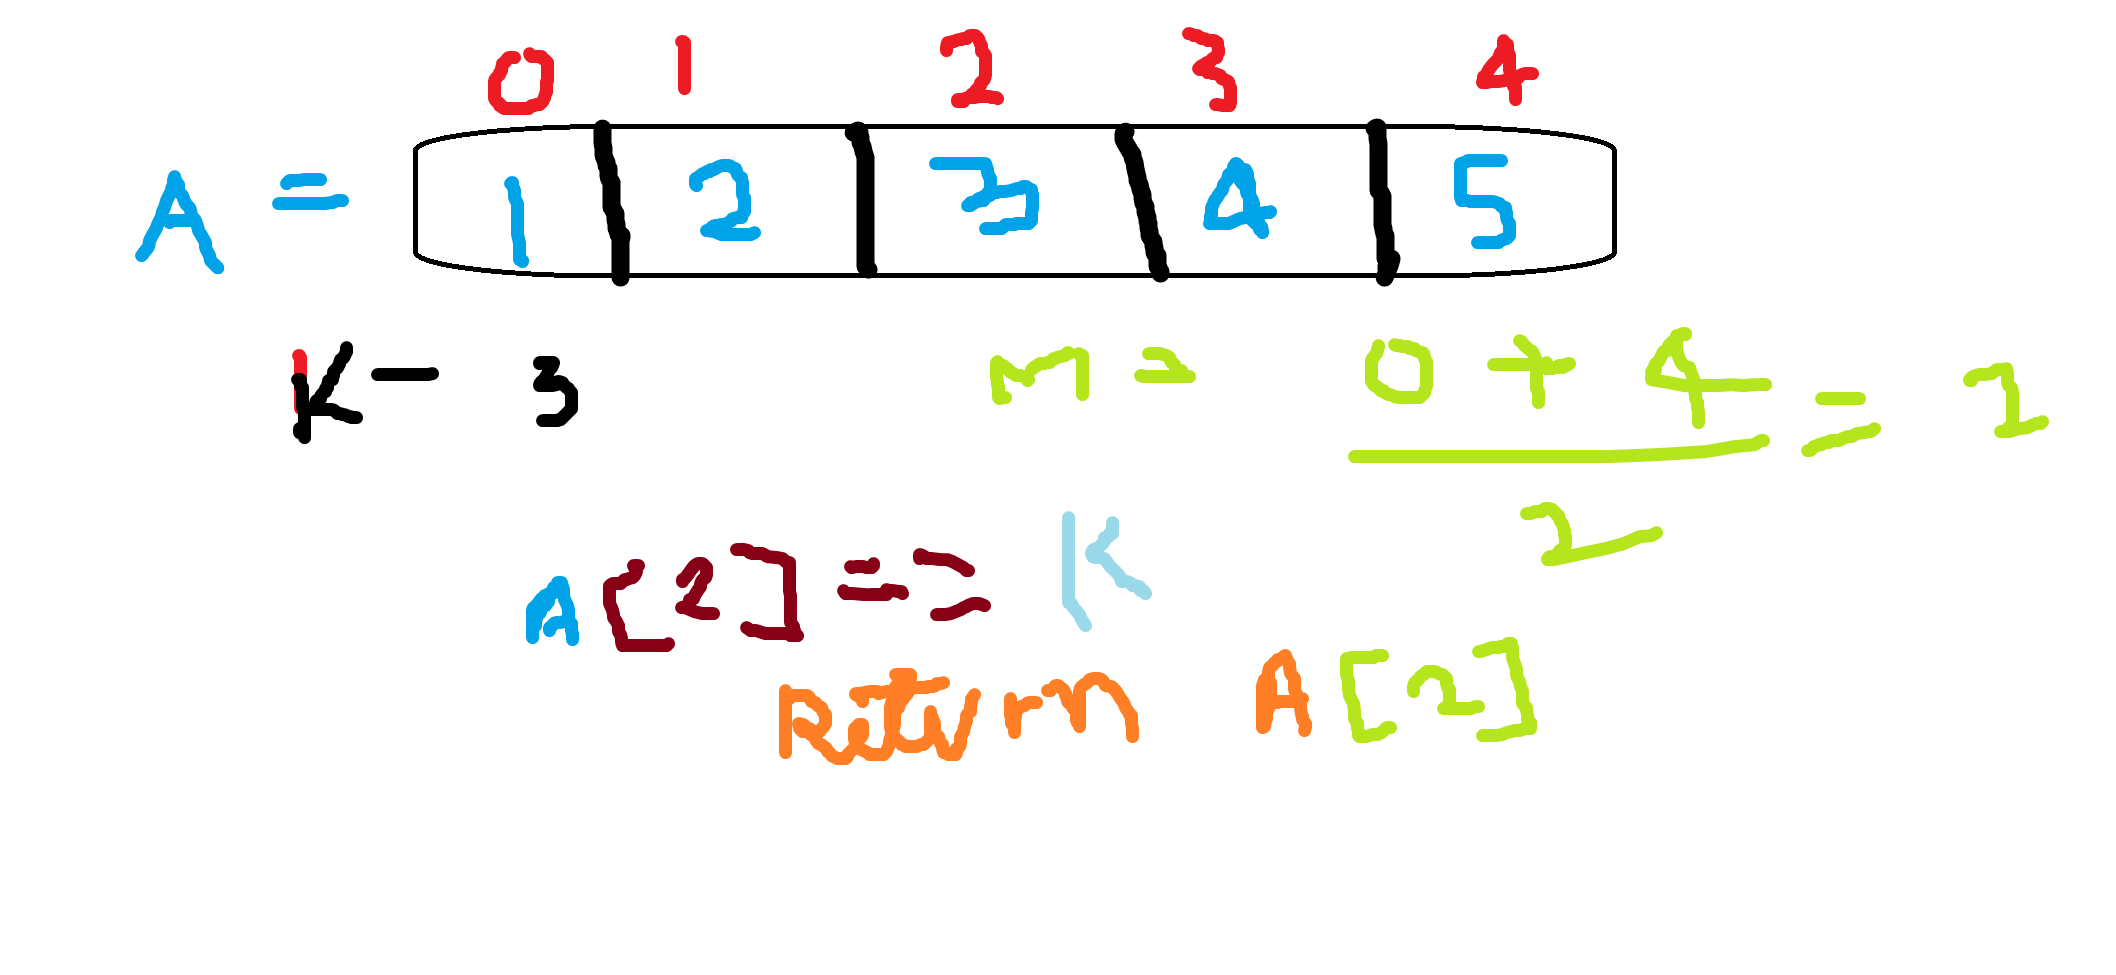 0 1 2 3 4
A = 1 2 3 4 5
K - 3
M = 0 + 4 = 2
2
A[2] == K
Return A[2]